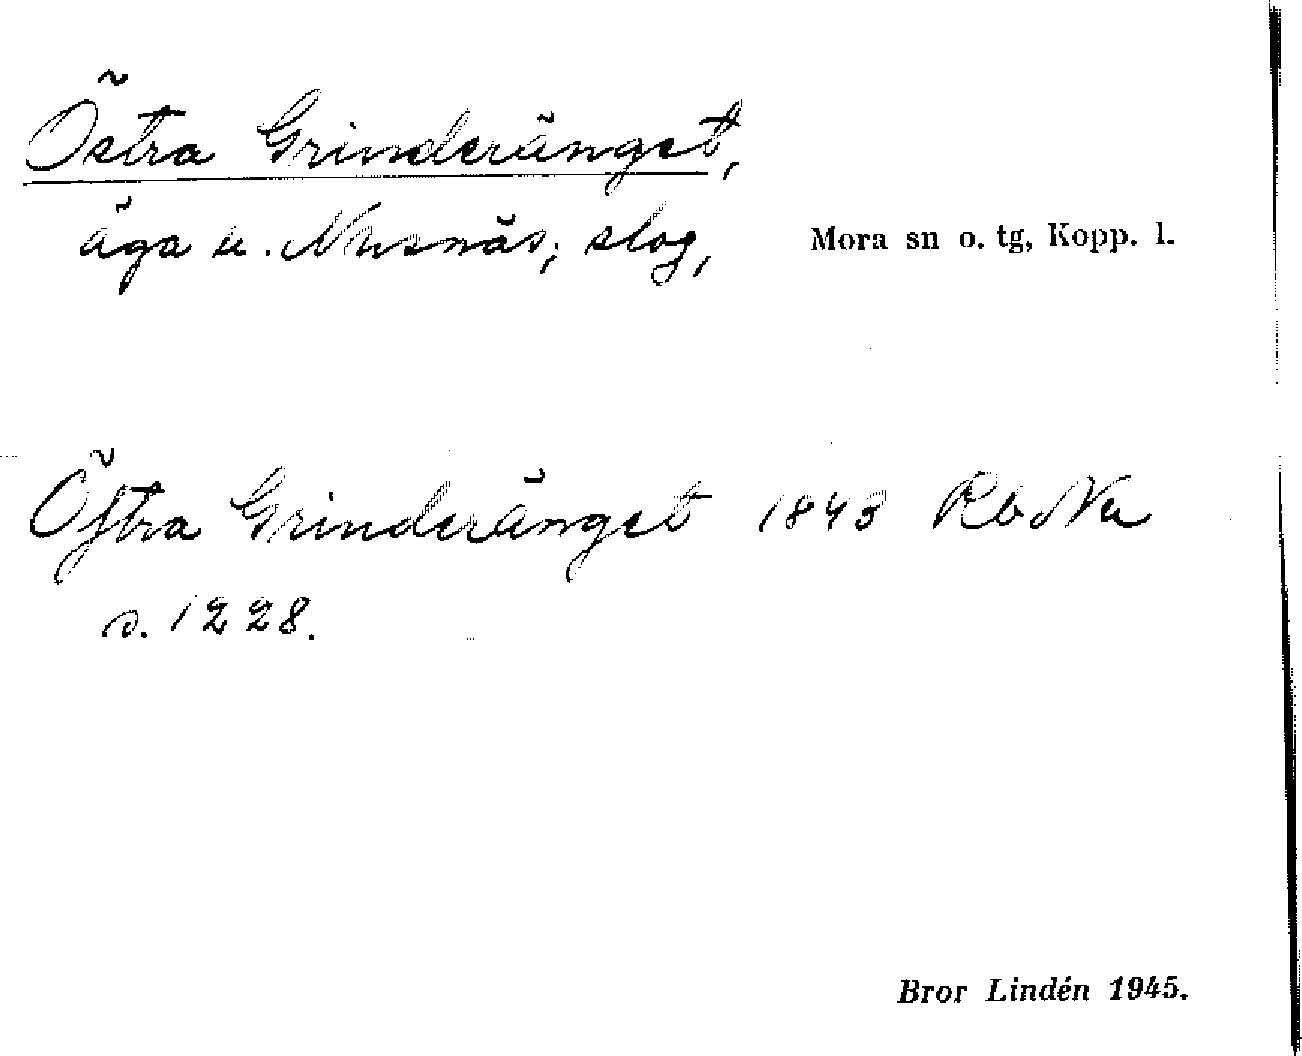 Östra Grinderänget,
äga u. Nusnäs; slog, Mora sn o. tg, Kopp. l.
Öſtra Grinderänget 1843 Rb Nu
s. 1228.
Bror Lindén 1945.